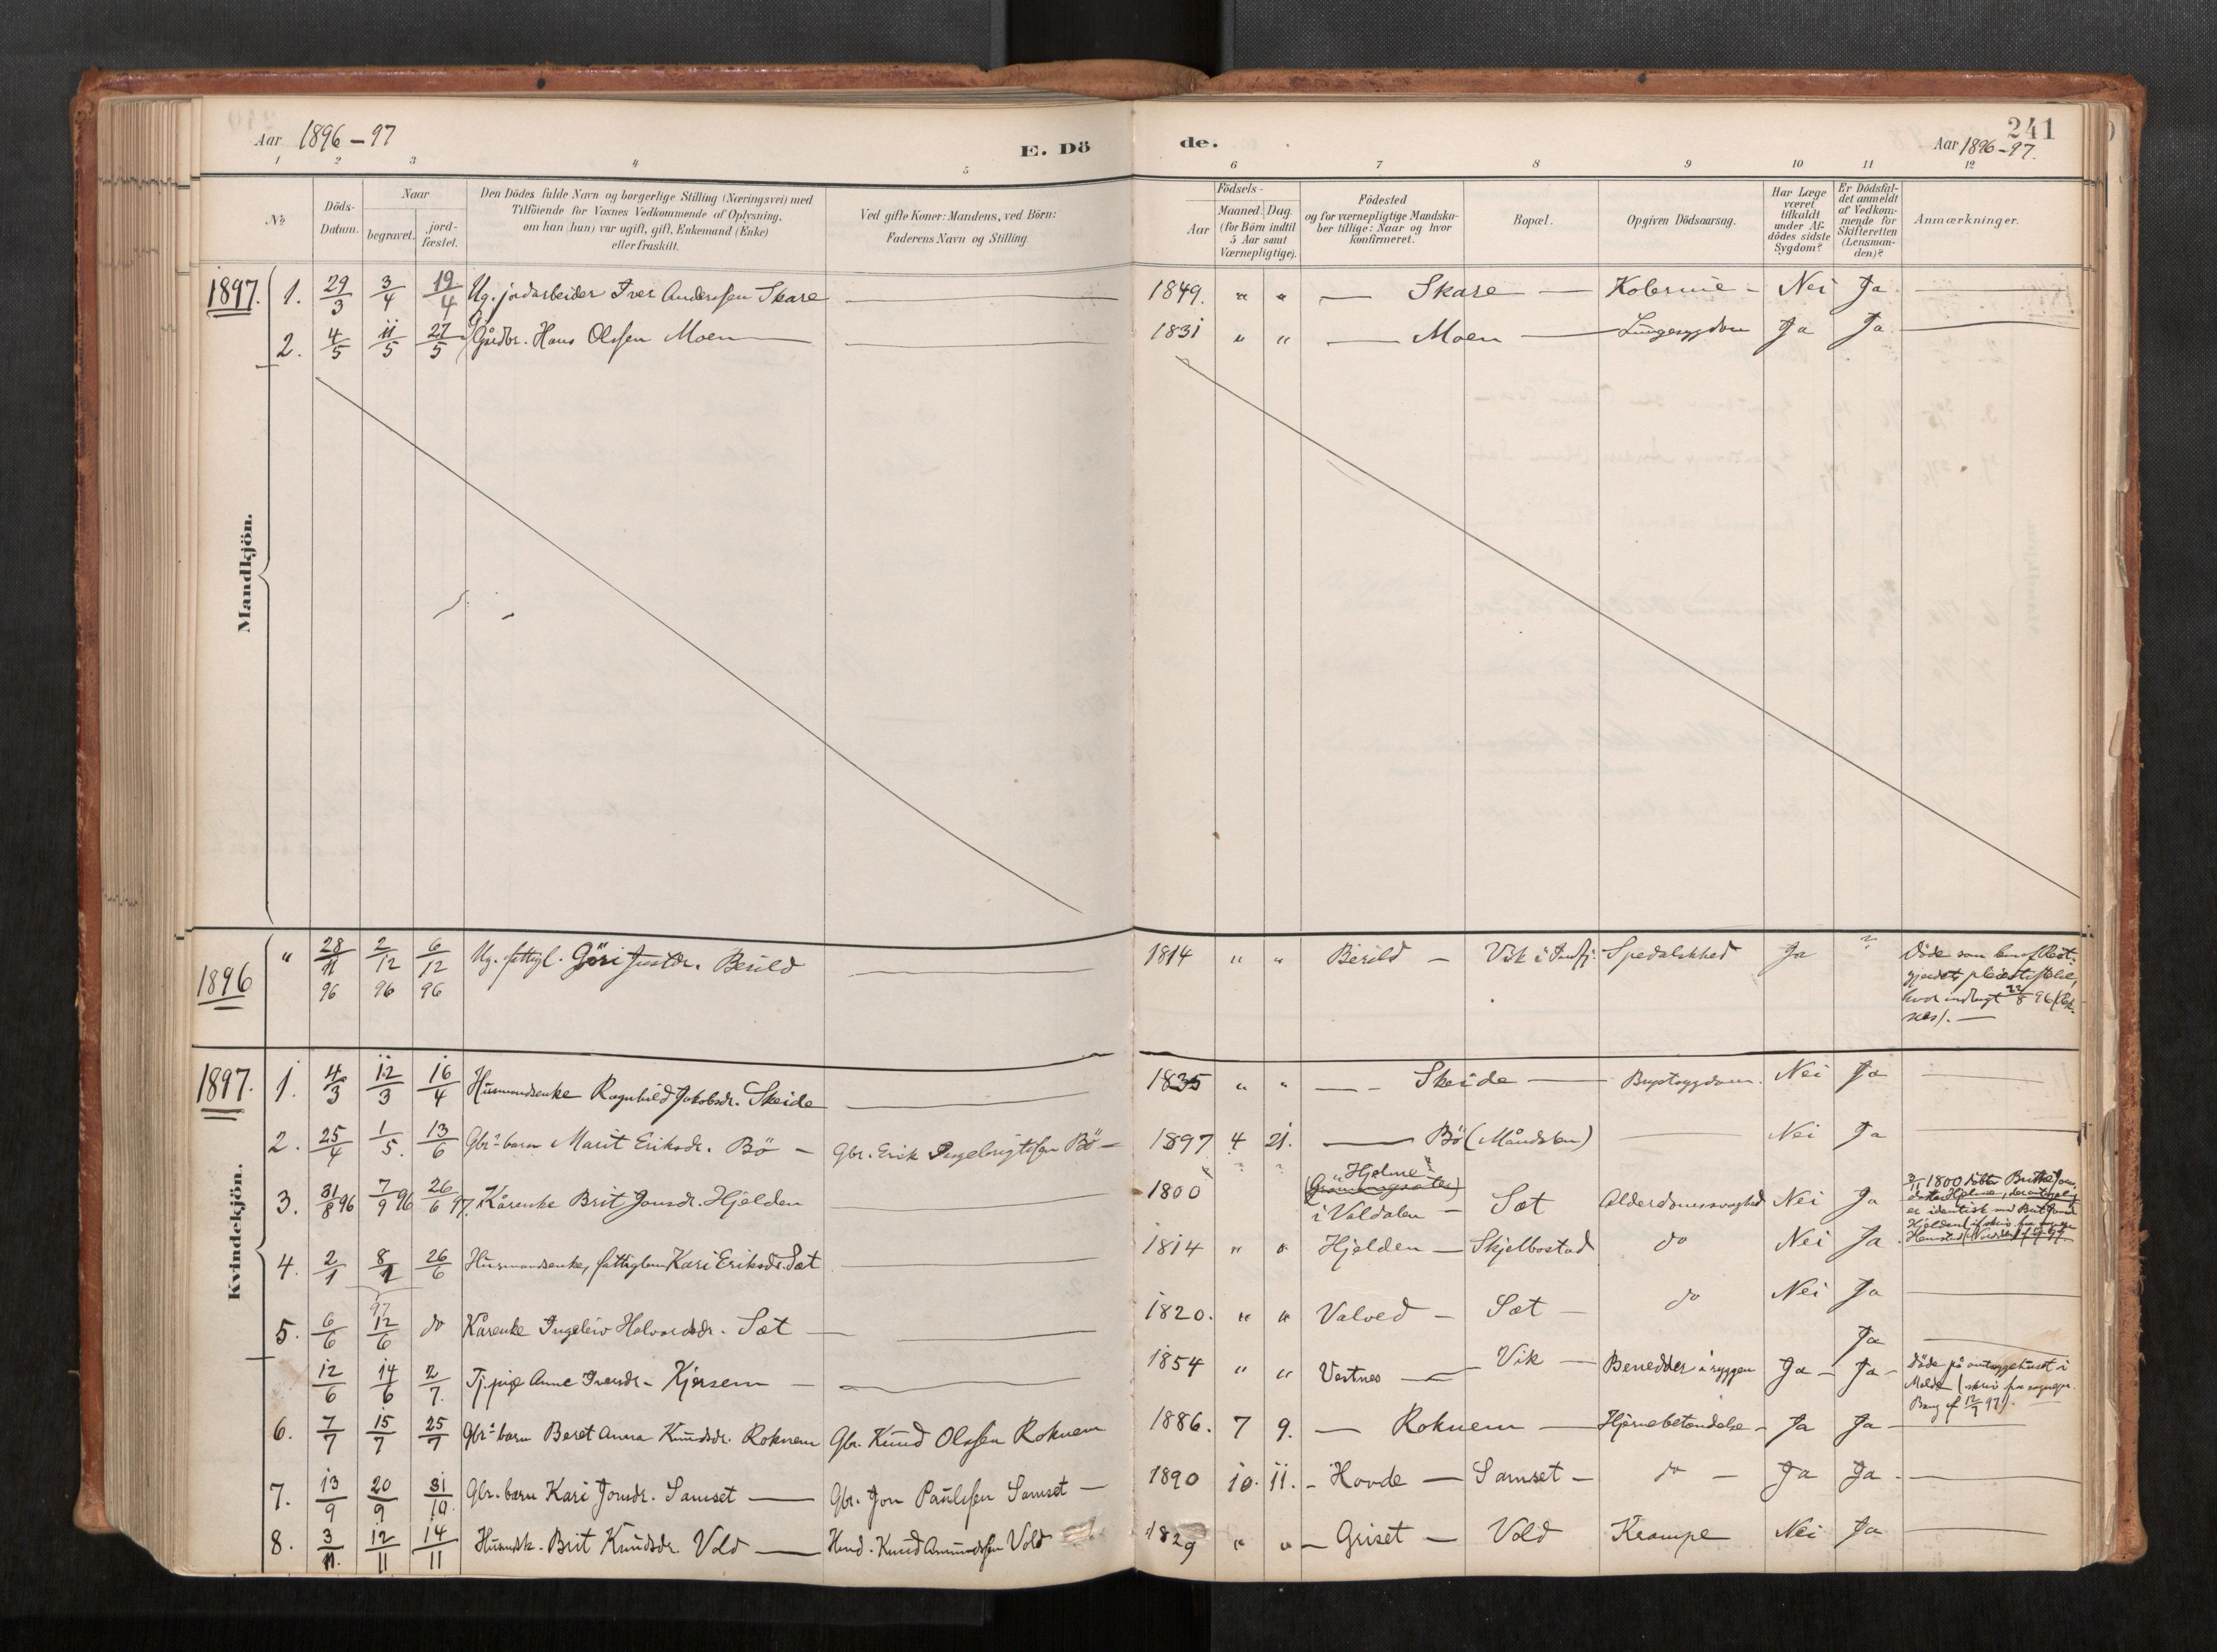 Aar 1896-97
E. Döde.
241
Aar 1896-97.
1 2 3 4 5 6 7 8 9 10 11 12
No
Döds-Datum.
Naar
begravet.
jord-fæstet.
Den Dödes fulde Navn og borgerlige Stilling (Næringsvei) med
Tilföiende for Voxnes Vedkommende af Oplysning,
om han (hun) var ugift, gift, Enkemand (Enke)
eller fraskilt.
Ved gifte Koner: Mandens, ved Börn:
Faderens Navn og Stilling.
Födsels-
Aar
Maaned. Dag.
(for Börn indtil
5 Aar samt
Værnepligtige).
Födested
og for værnepligtige Mandska-
ber tillige: Naar og hvor
konfirmeret.
Bopæl.
Opgiven Dödsaarsag.
Har Læge
været
tilkaldt
under Af-
dödes sidste
Sygdom?
Er Dödsfal-
det anmeldt
af Vedkom-
mende for
Skifteretten
(Lensman-
den)?
Anmærkninger.
Mandkjön.
1897. 1. 29/3 3/4 19/4 Ug. jordarbeider Iver Anderssen Skare — 1849. " " — Skare — Nei Ja —
2. 4/5 11/5 27/5 Gårdbr. Hans Olssen Moen — 1831 " " — Moen — Lungesygdom Ja Ja —
Kvindekjön.
1896 " 28/11 96 2/12 96 6/12 96 Ug. fattigl. Göri Justdr. Berild — 1814 " " Berild — Vik i Spedalskhed Ja ?
Döde som lem af Reit-
gjerdets pleiestiftelse,
hvor indlagt 22/8 96
1897. 1. 4/3 12/3 16/4 Husmandsenke Ragnhild Jakobsdr. Skeide — 1835 " " — Skeide — Brystsygdom. Nei Ja —
2. 25/4 1/5. 13/6 Gbr.barn Marit Eriksdr. Bö — Gbr. Erik Ingebrigtssen Bö — 1897 4 21. — Bö (Måndslen) — Nei Ja —
3. 31/8 96 7/9 96 26/6 97. Kårenke Brit Jonsdr. Hjelden — 1800 ? ? "Hjelme"
i Valdalen — Sæt Alderdomssvaghed Nei Ja
er identisk med Brit Jonsd.
4. 2/1 8/1 26/6 Husmandsenke, fattiglem Kari Eriksdr. Sæt — 1814 " " Hjelden — Skjelbostad do Nei Ja
5. 6/6 12/6 do Kårenke Ingeleiv Halvorsdr. Sæt — 1820. " " Valved — Sæt — do Nei Ja —
12/6 14/6 2/7. Tj.pige Anne Iversdr. Kjersem — 1854 " " Vestnes — Vik — Benedder i ryggen Ja — Ja —
Ja
Döde på amtssygehuset i
Molde
6. 7/7 15/7 25/7 Gbr.barn Beret Anna Knudsdr. Roknem Gbr. Knud Olssen Roknem 1886. 7 9. — Roknem — Hjernebetændelse — Ja Ja —
7. 13/9 20/9 31/10. Gbr. barn Kari Jonsdr. Samset — Gbr. Jon Paulssen Samset — 1890 10. 11. — Hovde — Samset — do — Ja Ja —
8. 3/11. 12/11 14/11 Husmdsk. Brit Knudsdr. Vold — Husmd. Knud Amundssen Vold 1829 " " — Griset — Vold Krampe Nei Ja —